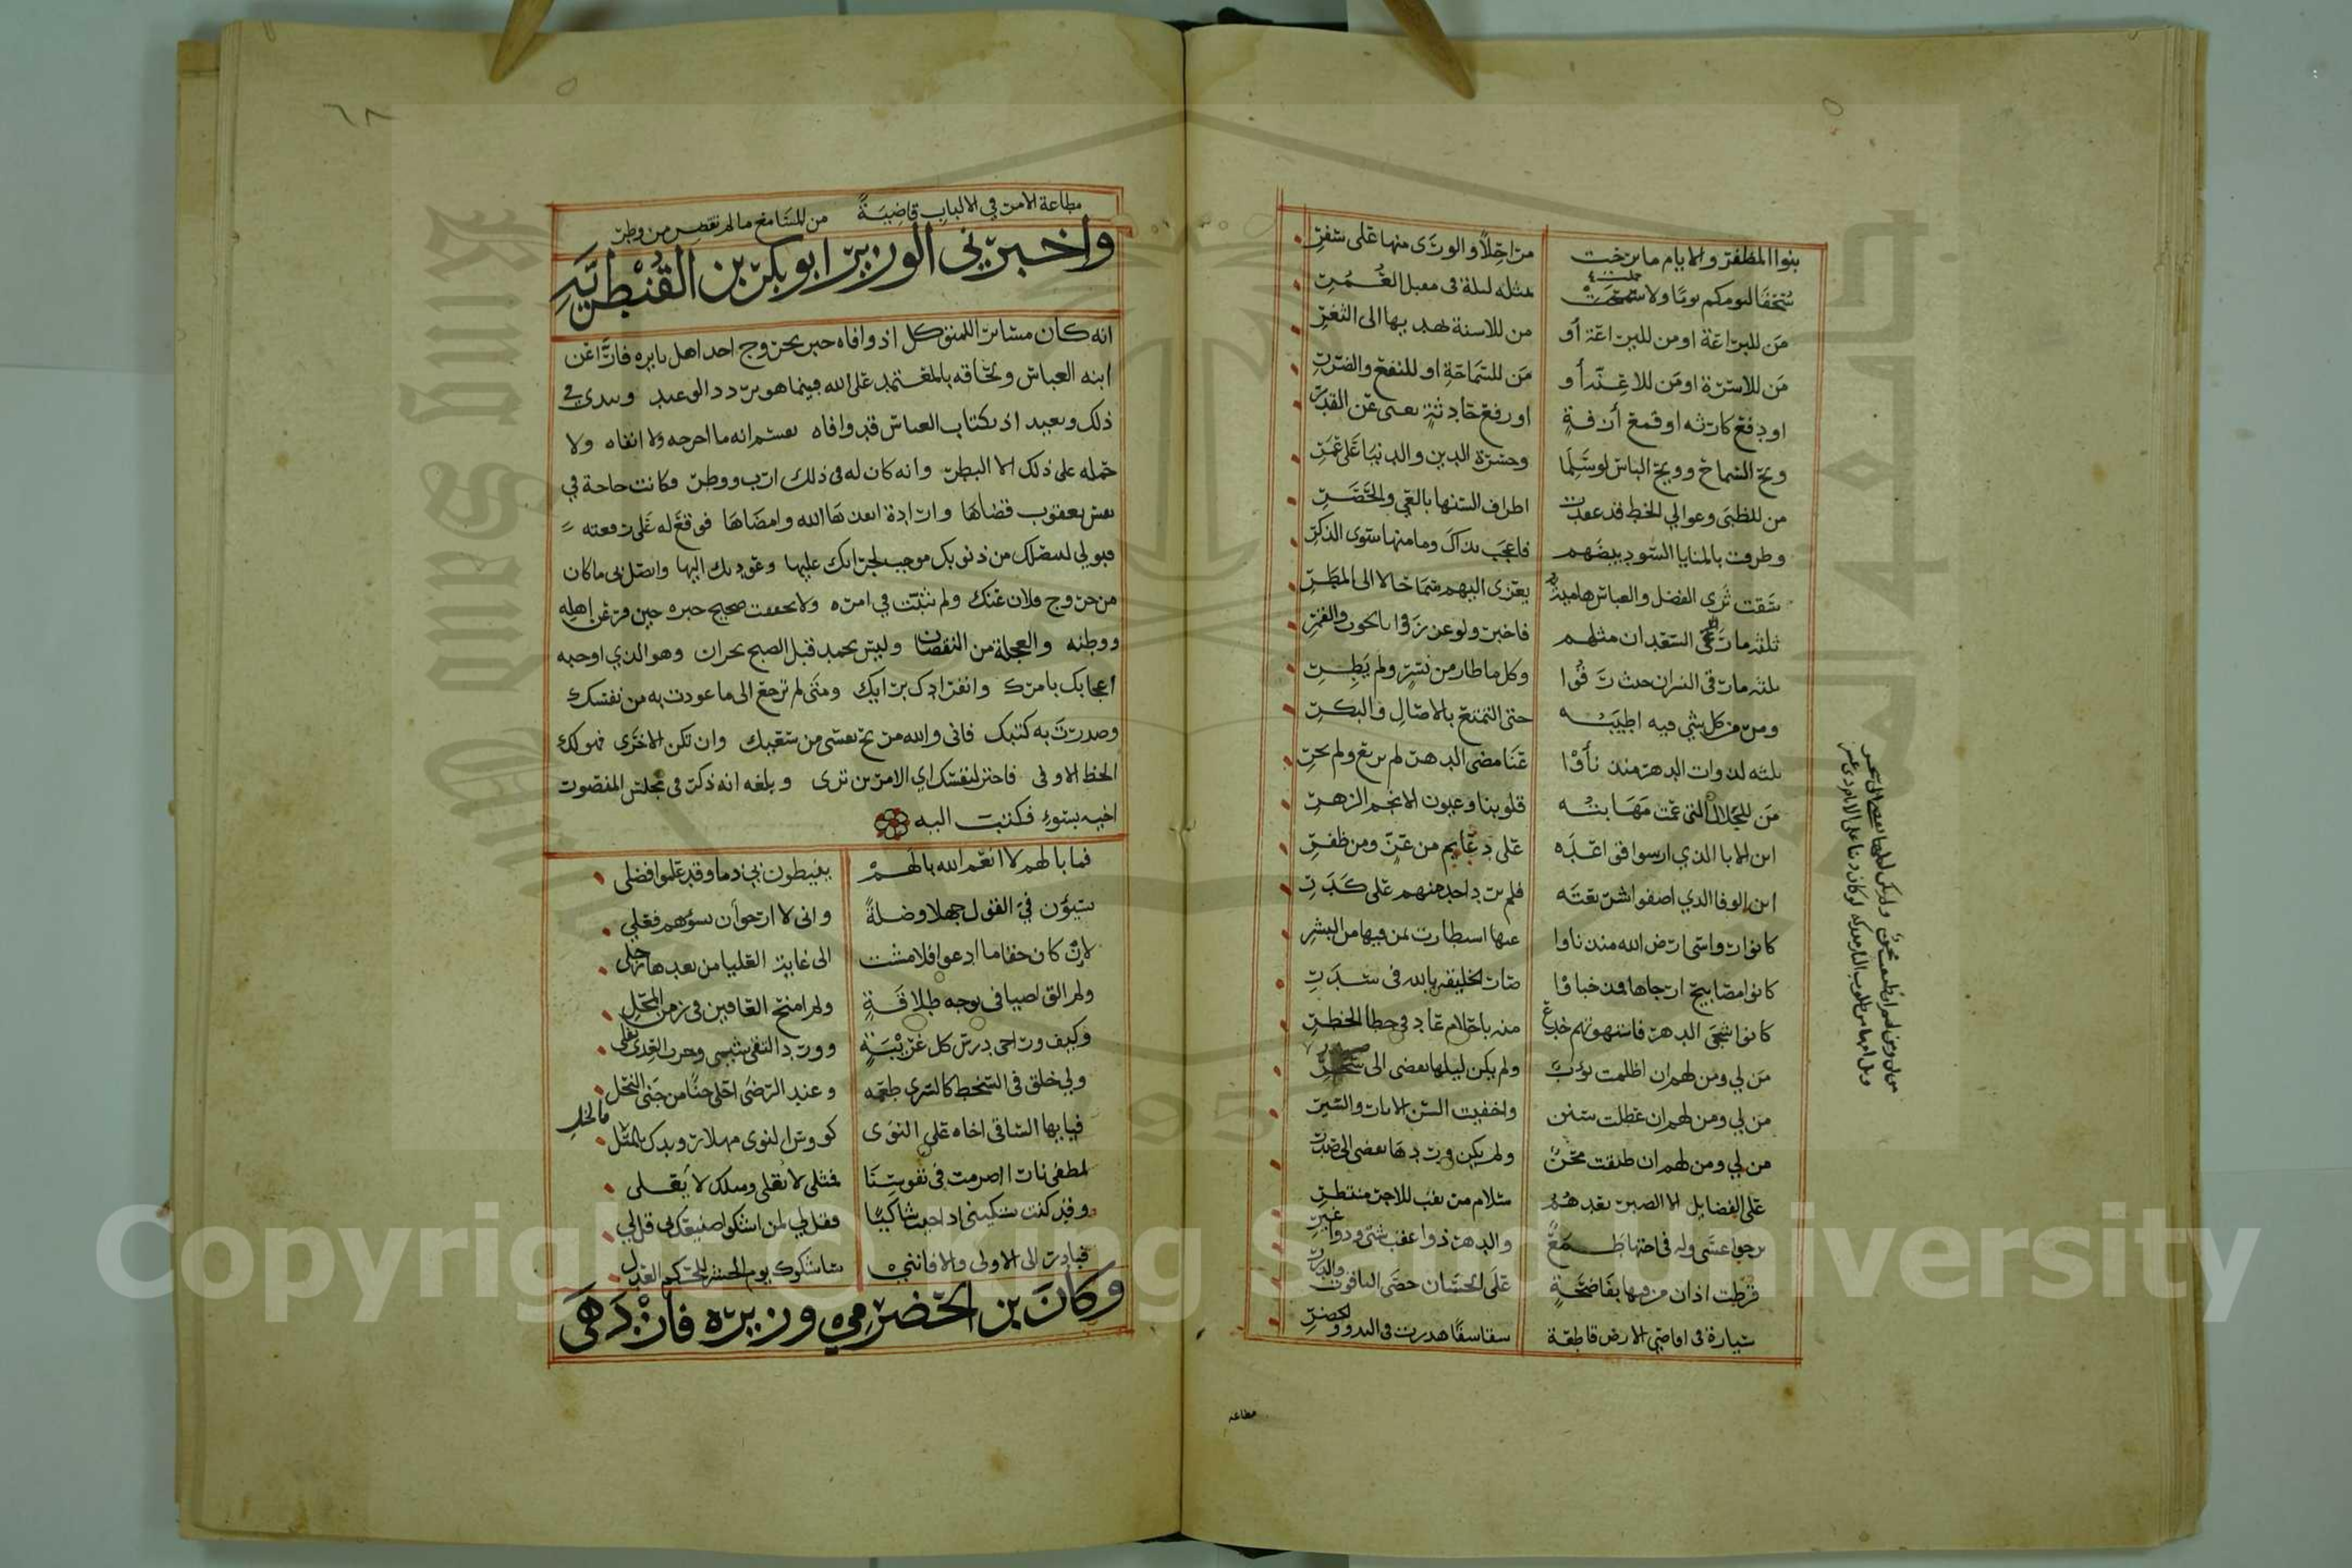 بنوا المظفر والايام ما برحت مراحلاً والورى منها على سفر
سُحقا ليومكم يومًا ولا حملت بمثله ليلة في مقبل العُمُر
مَن للبراعة او من لليراعة أو من للاسنة يهديها الى الثغر
مَن للاسرة او مَن للاعِنّة أو مَن للسماحة او للنفع والضرر
او دفع كارثه او قمع آزفةٍ او رفع حادثةٍ تعيى عن القدر
ويح السماح وويح الباس لو سَلِمَا وحسرة الدين والدنيا على عُمَر
من للظبى وعوالي الخط قد عقدت اطراف السنها بالعي والحَصَر
وطرقت بالمنايا السود بيضهم فاعجب بذاك وما منها سوى الذكر
سَقت ثَرى الفضل والعباس هامية يعزى اليهم سماحا لا الى المطر
ثلثه ما رَقى السعدان مثلهم فاخبر ولو عززوا بالحوت والقمر
ثلثه ما رقى النسران حيث رَقُوا وكل ما طار من نَسْرٍ ولم يَطِر
ومر من كل شي فيه اطيبه حتى التمتع بالاصال والبكر
ثلثه لذوات الدهر منذ نأوا عَنا مضى الدهر لم يربع ولم يحر
مَن للجلال التي عمت مهابته قلوبنا وعيون الانجم الزهر
اين الابا الذي ارسوا قواعده على دعايم من عزّ ومن ظفر
اين الوفا الذي اصفوا شريعته فلم يرد احد منهم على كدر
كانوا رواسي ارض الله منذ ناوا عنها استطارت بمن فيها من البشر
كانوا مصابيح ارجاها فمذ خباوا صار الخليقه بالله في سدر
كانوا شجى الدهر فاستهوتهم خدع منه باحلام عاد في خطا الخطر
مَن لي ومن لهم ان اظلمت نوب ولم يكن ليلها يفضى الى سحر
من لي ومن لهم ان عطلت سنن واخفيت السن الاثار والسير
من لي ومن لهم ان طبقت محن ولم يكن وردها يفضى الى صدر
على الفضايل الا الصبر بعدهُمُ سلام مرتقب للاجر منتظر
يرجوا عسى وله في اختها طمع والدهر ذوا عقب شتى وذوا غير
قرطت اذان من فيها بفاضحةٍ على الحسان حصى الياقوت والدرر
سيارة في اقاصي الارض قاطعة شقاشقا هدرت في البدو والحضر
مطاعه
٦٨
مطاعة الامر في الالباب قاضيةً من المسامع ما لم تقض من وطر
واخبرني الوزير ابو بكر بن القُبْطرنيه
انه كان مساير المتوكل اذ وافاه خبر بخروج احد اهل يابره فارًّا عن
ابنه العباس ولحاقه بالمعتمد على الله فبينما هو يردد الوعيد ويبدي في
ذلك ويعيد اذ بكتاب العباس قد وافاه يقسم انه ما اخرجه ولا انفاه ولا
حمله على ذلك الا البطر وانه كان له في ذلك ارب ووطر وكانت حاجة في
نفس يعقوب قضاها وارادة انفذها الله وامضاها فوقع له على رقعته
قبولي لتنصلك من ذنوبك موجب لجراتك عليها وعودتك اليها واتصل بي ما كان
من خروج فلان عنك ولم تثبت في امره ولا تحققت صحيح خبره حين فر عن اهله
ووطنه والعجلة من النقصان وليس يحمد قبل الصبح بحران وهو الذي اوجبه
اعجابك بامرك وانفرادك برايك ومتى لم ترجع الى ما عودت به من نفسك
وصدرت به كتبك فانى والله مريح نفسى من شغبك وان تكن الاخرى فهو لك
الحظ الاوفى فاختر لنفسك اي الامرين ترى وبلغه انه ذكر في مجلس المنصور
اخيه بسوء فكتب اليه
فما بالهم لا انعم الله بالهم ينيطون بي ذما وقد علموا فضلى
يسيؤن في القول جهلا وضلةً وانى لا ارجوا ان يسؤهم فعلي
لان كان حقا ما ادعوا فلا مشت الى غاية العليا من بعدها رجلى
ولم الق اضيافى بوجه طلاقةٍ ولم امنح العافين في زمن المحل
وكيف وراحى درس كل غريبةٍ وورد التقى شمى وحرب العدى نقلى
ولي خلق في السخط كالشري طعمه وعند الرضى احلى جنًا من جنى النحل
فيايها الساقى اخاه على النوى كووس النوى مهلا رويدك بالمثل
لمطفى نارا اضرمت في نفوسنا فمثلى لا يقلى ومثلك لا يقلى
وقد كنت تشكينى اذا جيت شاكيًا فقل لي لمن اشكوا صنيعك بي قل لي
فبادر الى الاولى والا فانني ساشكوك يوم الحشر للحكم العدل
وكان بن الحضرمي وزيره فازدهى